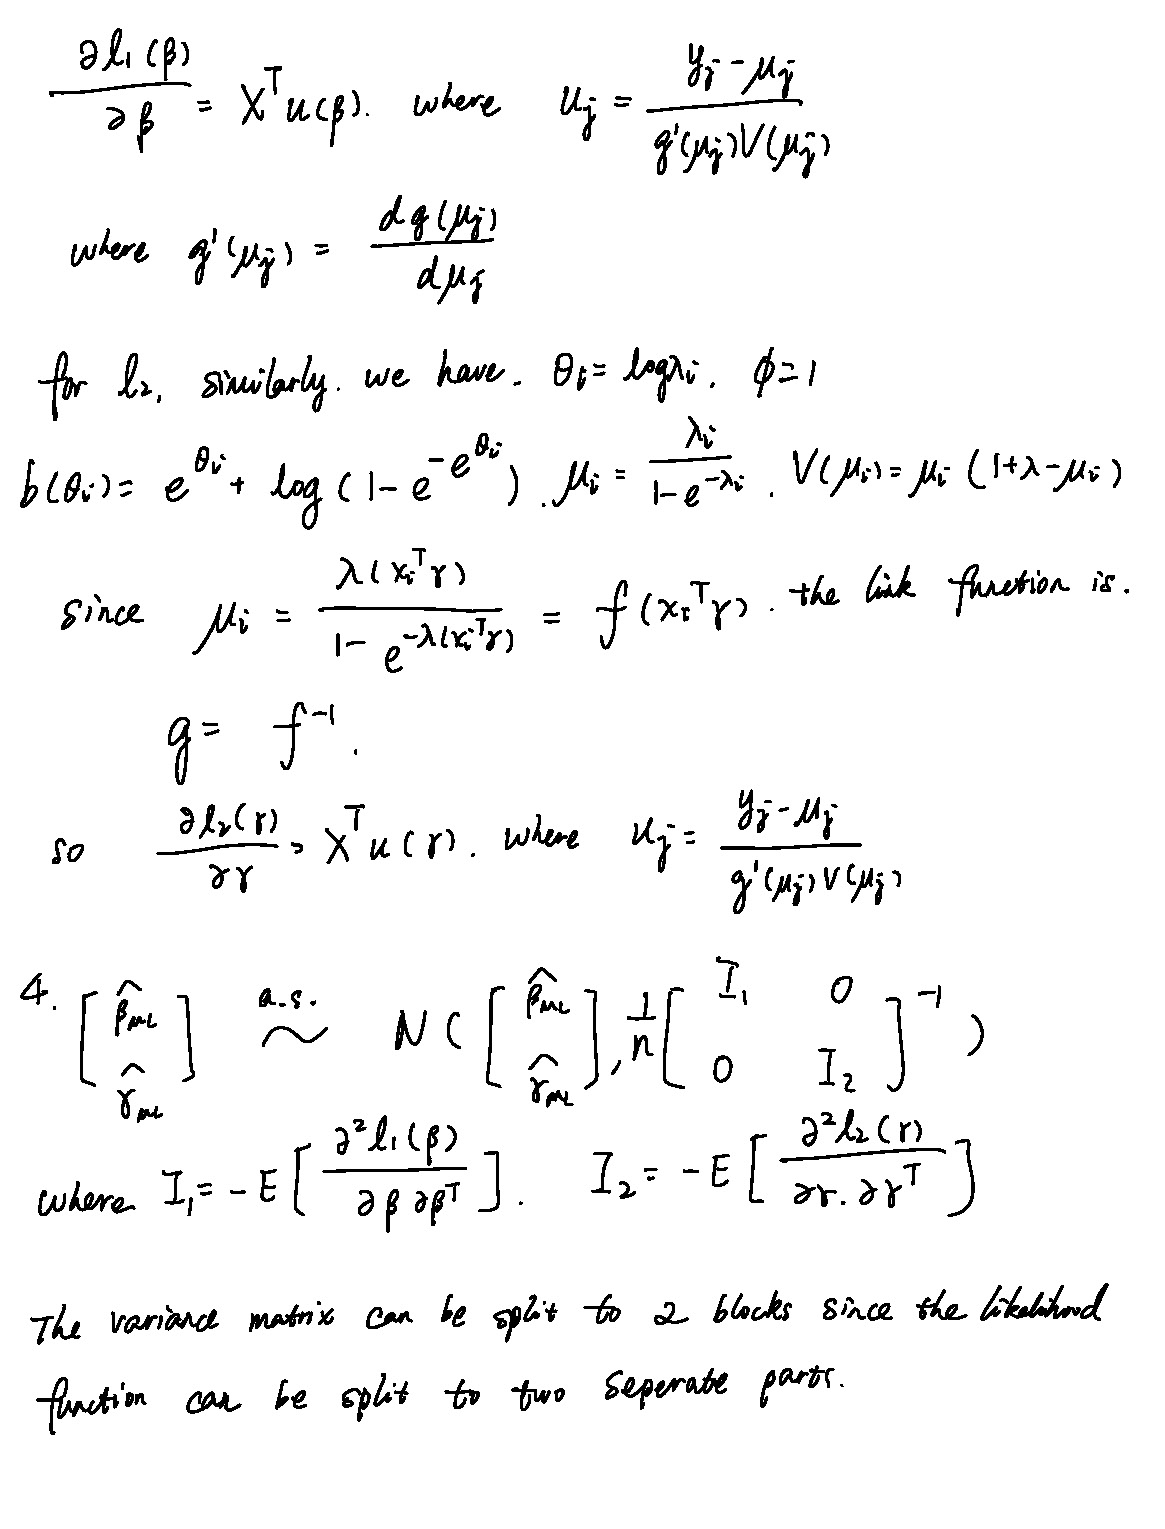 ∂l₁(β)/∂β = Xᵀu(β). where u_j = (y_j - μ_j)/(g'(μ_j)V(μ_j))
where g'(μ_j) = dg(μ_j)/dμ_j
for l₂, similarly. we have. θᵢ = logλᵢ. ϕ=1
b(θᵢ) = e^{θᵢ} + log(1-e^{-e^{θᵢ}}). μᵢ = λᵢ/(1-e^{-λᵢ}). V(μᵢ) = μᵢ(1+λ-μᵢ)
since μᵢ = λ(xᵢᵀγ)/(1-e^{-λ(xᵢᵀγ)}) = f(xᵢᵀγ). the link function is.
g = f⁻¹.
so ∂l₂(γ)/∂γ = Xᵀu(γ). where u_j = (y_j - μ_j)/(g'(μ_j)V(μ_j))
4. [β̂_ML γ̂_ML] a.s. ~ N([β̂_ML γ̂_ML], 1/n [I₁ 0 0 I₂]⁻¹)
where I₁ = -E[∂²l₁(β)/∂β∂βᵀ]. I₂ = -E[∂²l₂(γ)/∂γ.∂γᵀ]
The variance matrix can be split to 2 blocks since the likelihood
function can be split to two seperate parts.